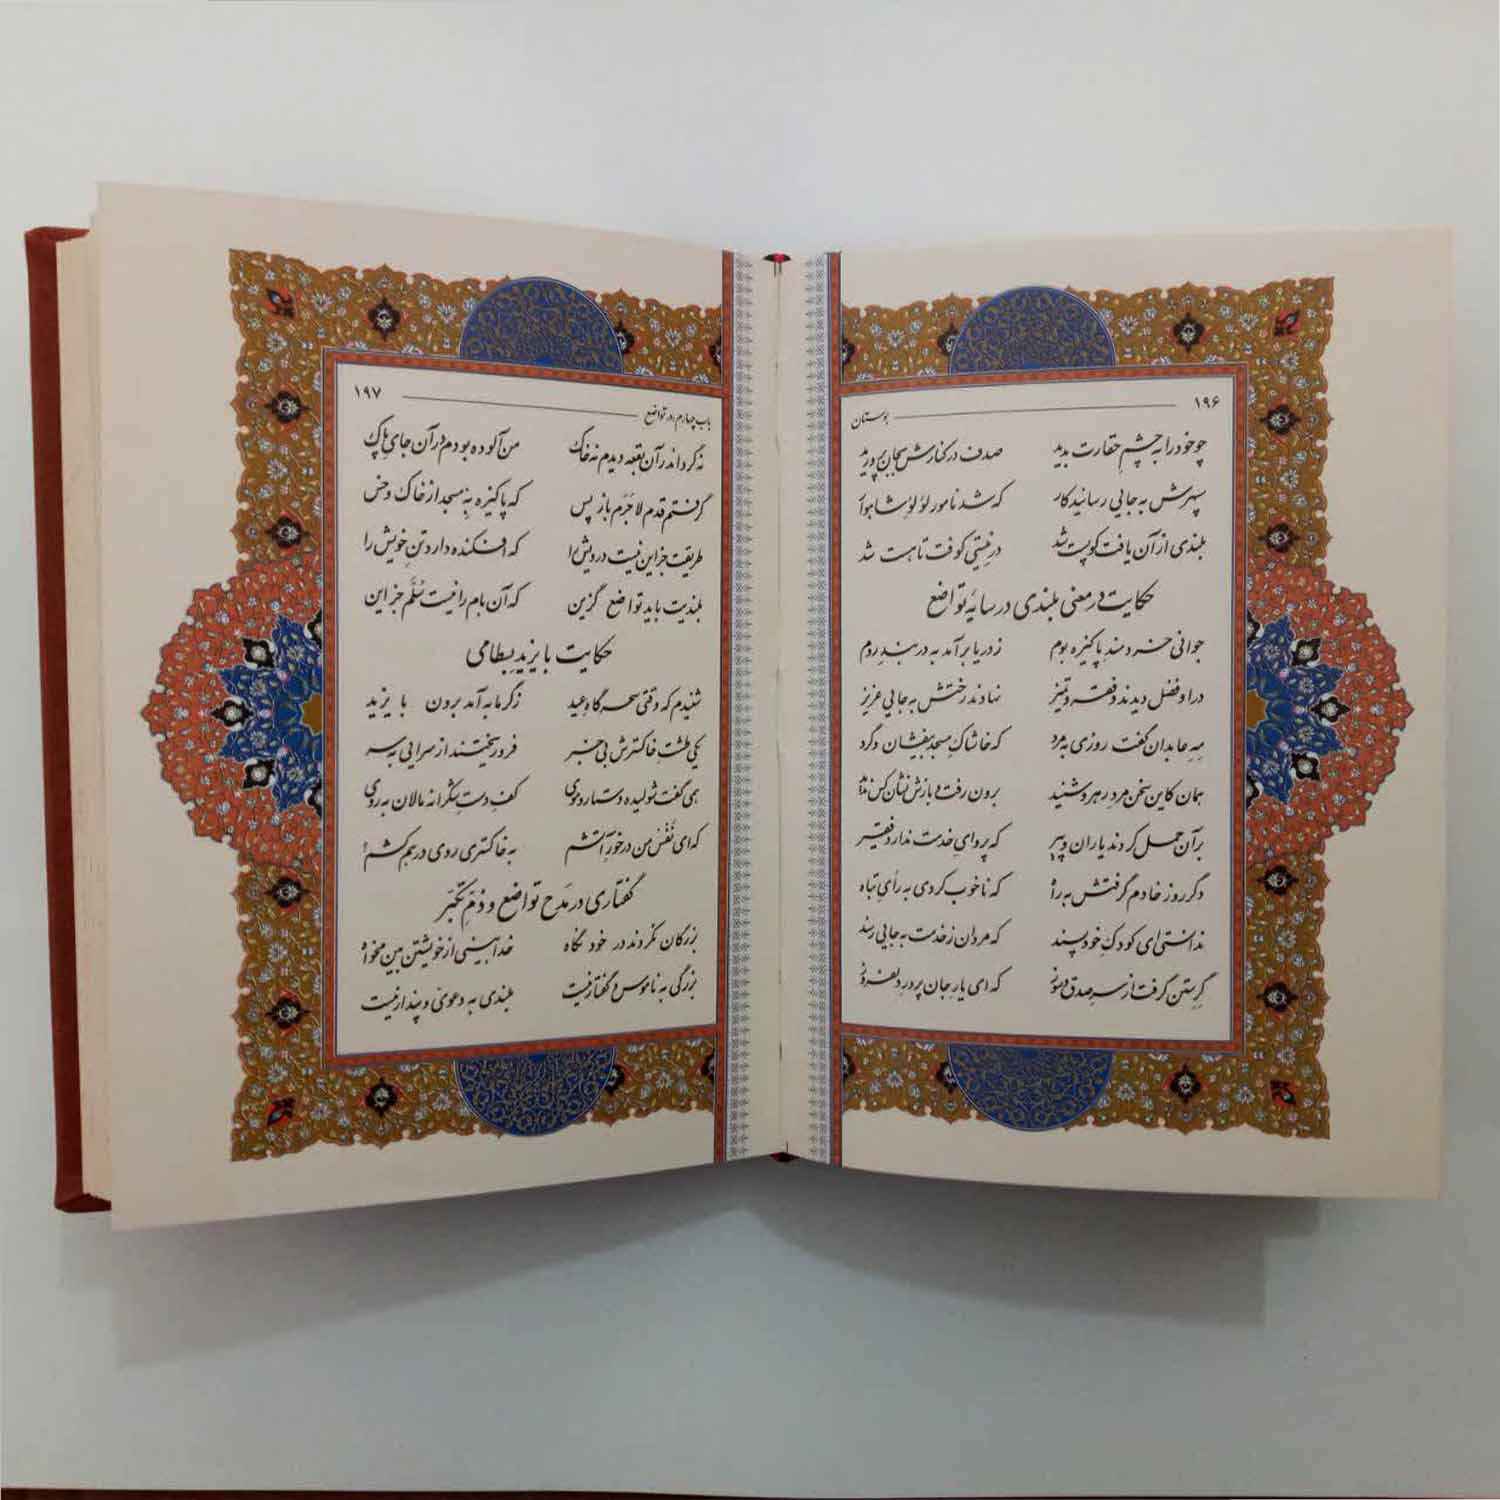 ۱۹۶ بوستان
چو خود را به چشم حقارت بدید صدف در کنارش بجان پرورید
سپهرش به جایی رسانید کار که شد نامور لؤلؤِ شاهوار
بلندی از آن یافت کو پست شد درِ نیستی کوفت تا هست شد
حکایت در معنی بلندی در سایهٔ تواضع
جوانی خردمندِ پاکیزه بوم ز دریا برآمد به دربندِ روم
در او فضل دیدند و فقر و تمیز نهادند رختش به جایی عزیز
مِهِ عابدان گفت روزی به مرد که خاشاکِ مسجد بیفشان و گرد
همان کاین سخن مردِ رهرو شنید برون رفت و بازش نشان کس ندید
بر آن حمل کردند یاران و پیر که پروایِ خدمت ندارد فقیر
دگر روز خادم گرفتش به راه که ناخوب کردی به رأیِ تباه
ندانستی ای کودکِ خودپسند که مردان ز خدمت به جایی رسند
گِرِستن گرفت از سرِ صدق و سوز که ای یارِ جان پرورِ دلفروز
باب چهارم در تواضع ۱۹۷
نه گرد اندر آن بقعه دیدم نه خاک من آلوده بودم در آن جایِ پاک
گرفتم قدم لاجَرَم باز پس که پاکیزه بِه مسجد از خاک و خس
طریقت جز این نیست درویش را که افکنده دارد تنِ خویش را
بلندیت باید تواضع گزین که آن بام را نیست سُلَّم جز این
حکایت بایزیدِ بسطامی
شنیدم که وقتی سحرگاهِ عید ز گرمابه آمد برون بایزید
یکی طشت خاکسترش بی‌خبر فرو ریختند از سرایی به سر
همی گفت شولیده دستار و موی کفِ دستِ شکرانه مالان به روی
که ای نَفْس من در خورِ آتشم به خاکستری روی درهم کشم؟
گفتاری در مَدح تواضع و ذمِ تکبّر
بزرگان نکردند در خود نگاه خدابینی از خویشتن بین مخواه
بزرگی به ناموس و گفتار نیست بلندی به دعوی و پندار نیست